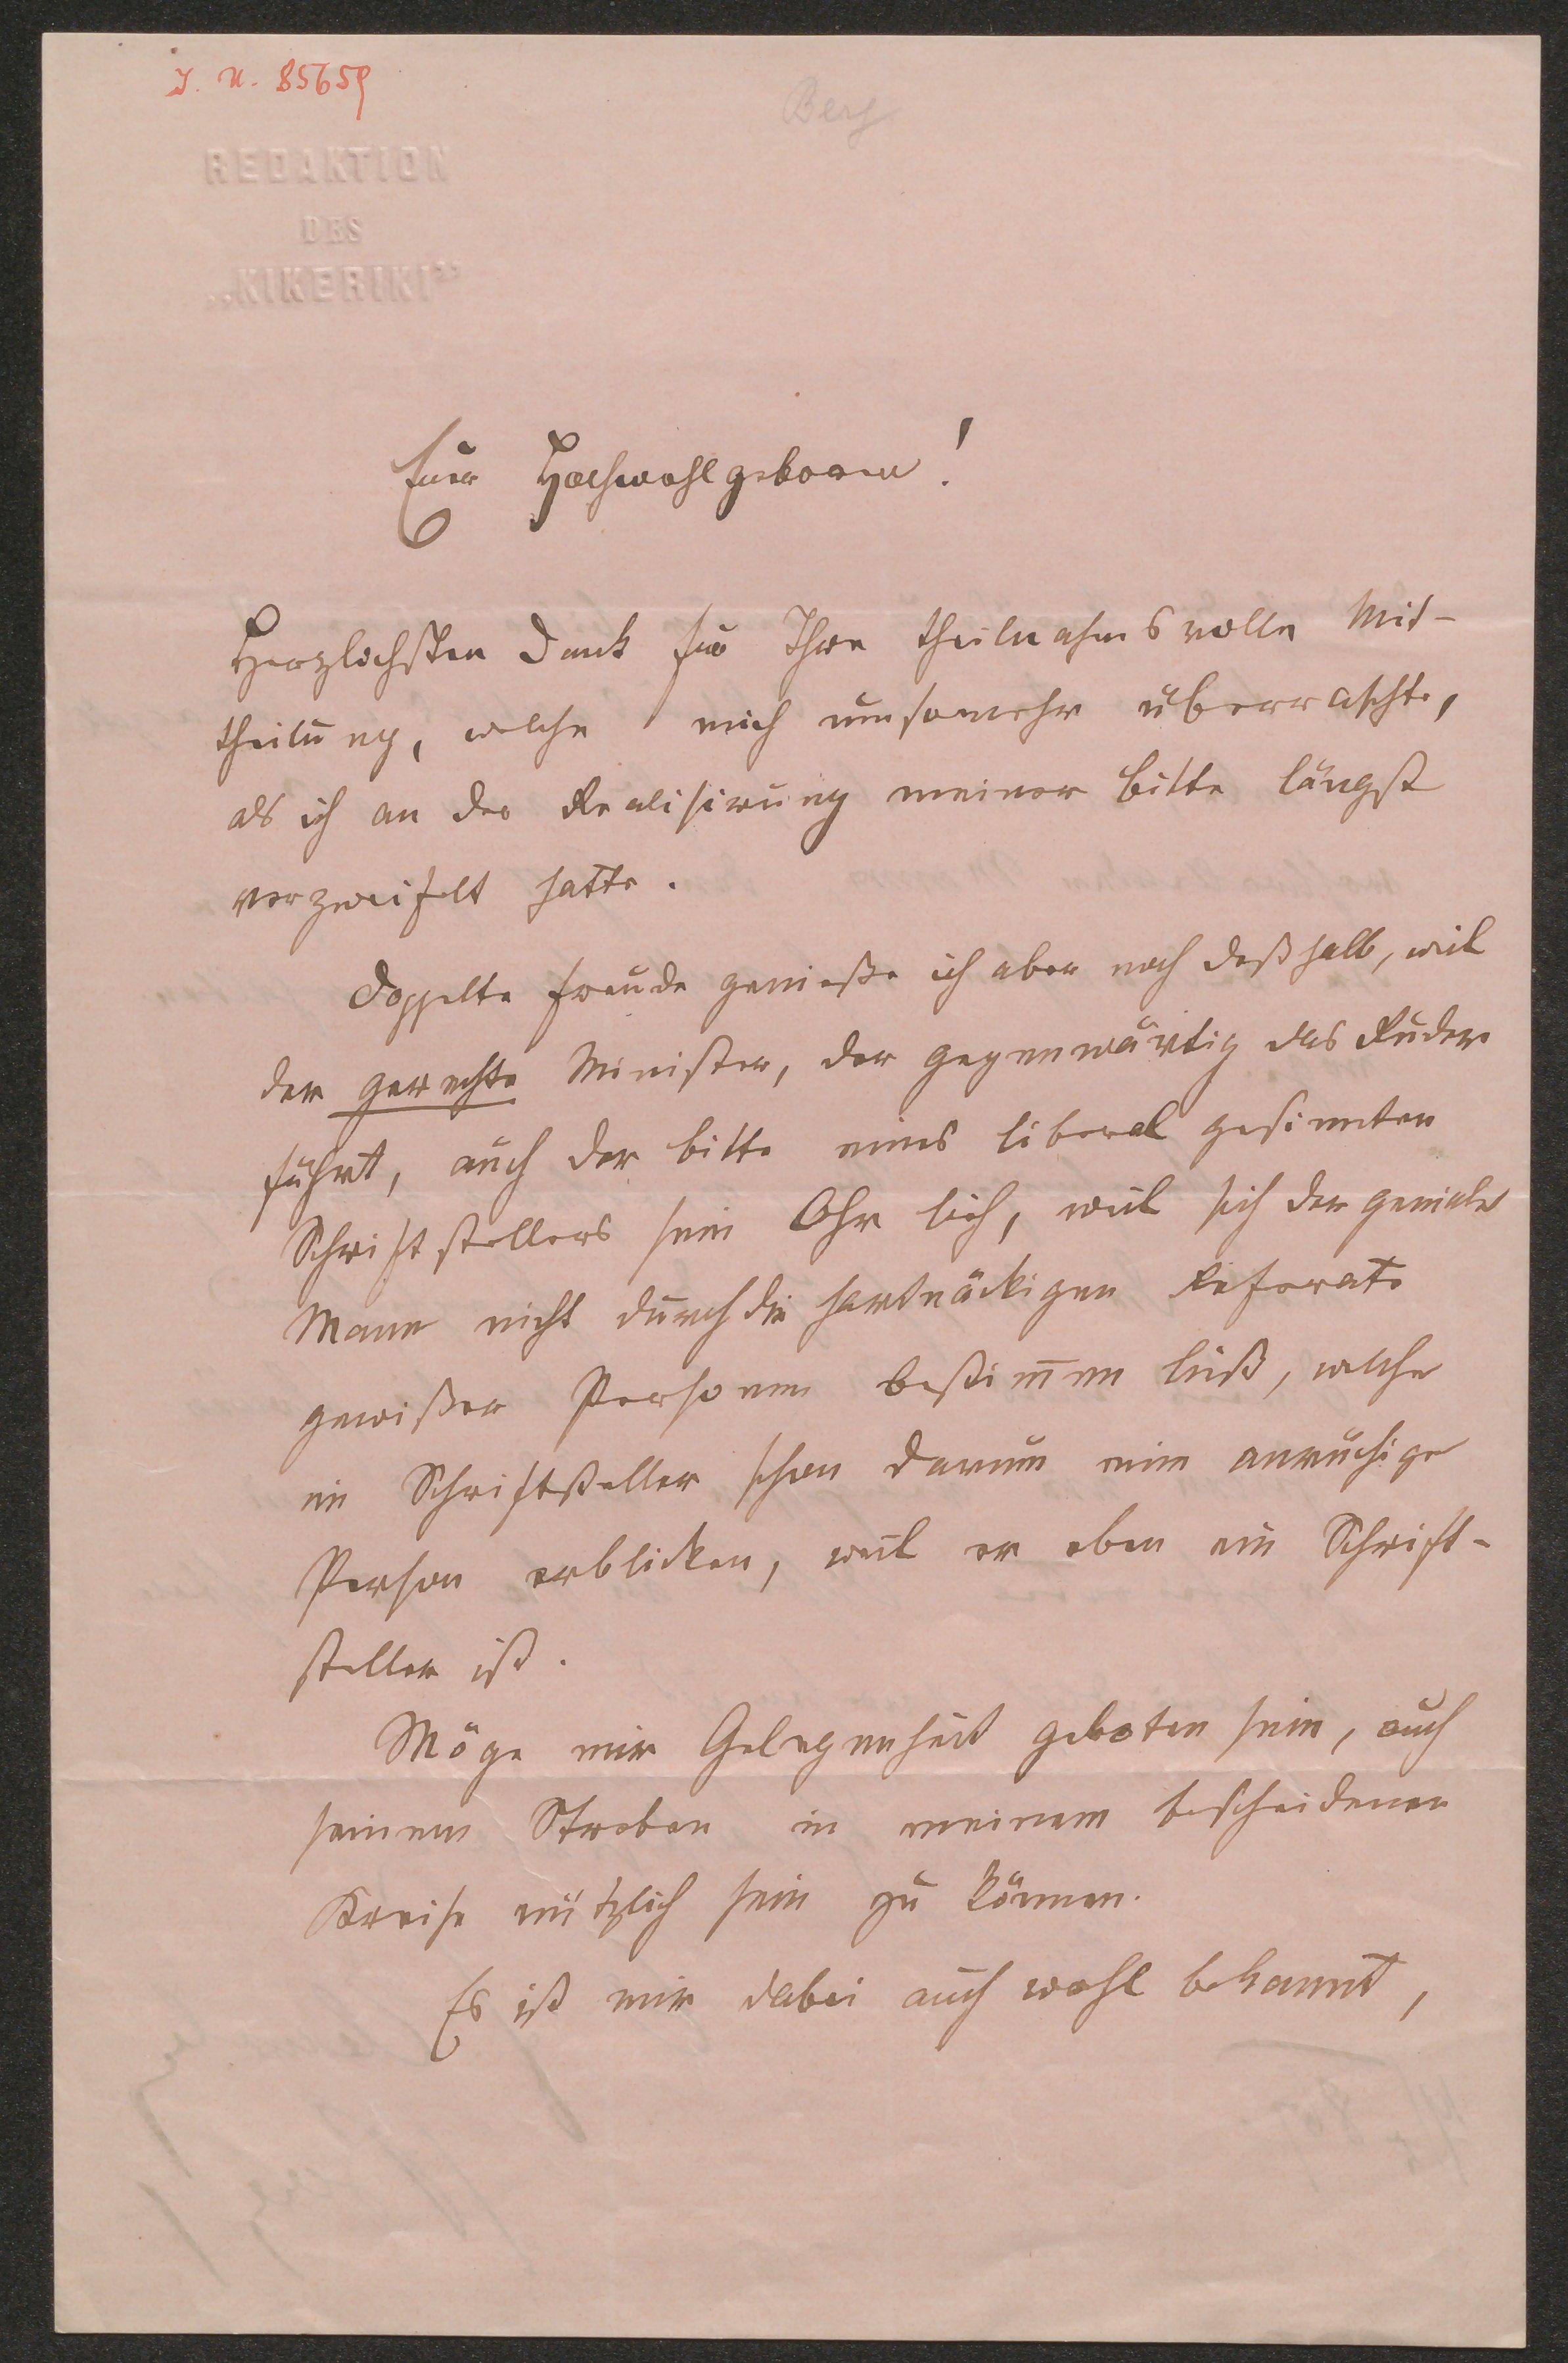 I. N. 85659
Berg
REDAKTION
DES
„KIKERIKI"
Euer Hochwohlgeboren!
Herzlichsten Dank für Ihre theilnahmsvolle Mit-
theilung, welche mich umsomehr überraschte,
als ich an der Realisirung meiner Bitte längst
verzweifelt hatte.
Doppelte Freude genieße ich aber noch deßhalb, weil
der gerechte Minister, der gegenwärtig das Ruder
führt, auch der Bitte eines liberal gesinnten
Schriftstellers sein Ohr lieh, weil sich der geniale
Mann nicht durch die hartnäckigen Referate
gewißer Personen bestimmen ließ, welche
im Schriftsteller schon darum eine anruchige
Person erblicken, weil er eben ein Schrift-
steller ist.
Möge mir Gelegenheit geboten sein, auch
seinem Streben in meinem bescheidenen
Kreise nützlich sein zu können.
Es ist mir dabei auch wohl bekannt,